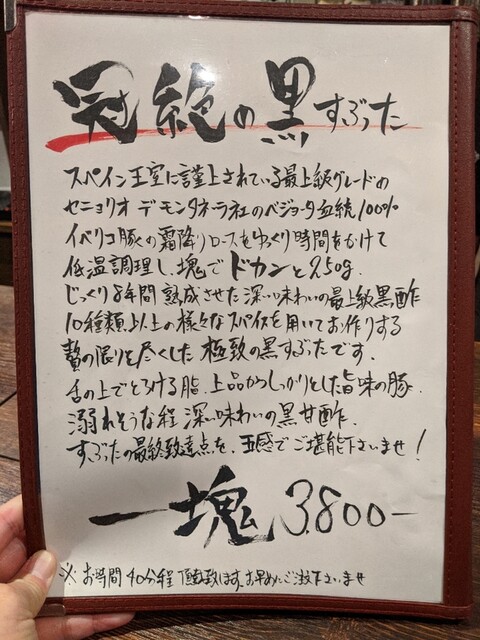 冠絶の黒すぶった
スペイン王室に謹上されている最上級グレードの
セニョリオ デ モンタネーラ社のベジョータ血統100%
イベリコ豚の霜降りロースをゆっくり時間をかけて
低温調理し、塊でドカンと250g.
じっくり8年間熟成させた深い味わいの最上級黒酢
10種類以上の様々なスパイスを用いてお作りする
贅の限りを尽くした極致の黒すぶたです.
舌の上でとろける脂.上品かつしっかりとした旨味の豚.
溺れそうな程深い味わいの黒甘酢.
すぶたの最終致達点を、五感でご堪能下さいませ!
一塊 3,800-
※お時間40分程頂戴致します.お早めにご注文下さいませ